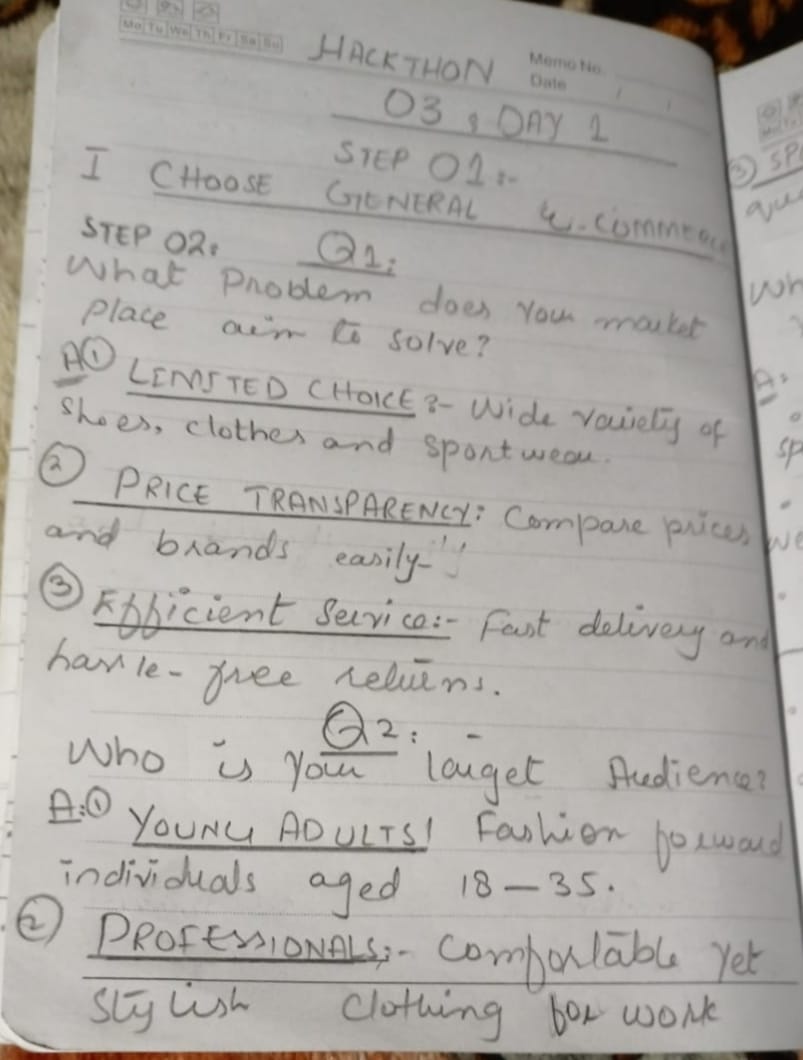 Mo Tu We Th Fr Sa Su
Memo No.
Date / /
HACKTHON
03, DAY 1
STEP 01:-
I CHOOSE GENERAL E-Commerce
STEP 02: Q1:
What Problem does Your market
place aim to solve?
A① LIMITED CHOICE:- Wide Variety of
Shoes, clothes and Sportwear.
② PRICE TRANSPARENCY: Compare prices
and brands easily
③ Efficient Service:- Fast delivery and
hassle-free returns.
Q2: -
Who is Your target Audience?
A:① YOUNG ADULTS! Fashion forward
individuals aged 18-35.
② PROFESSIONALS:- Comfortable Yet
Stylish Clothing for work
③ SP
que
Wh
A:
sp
we